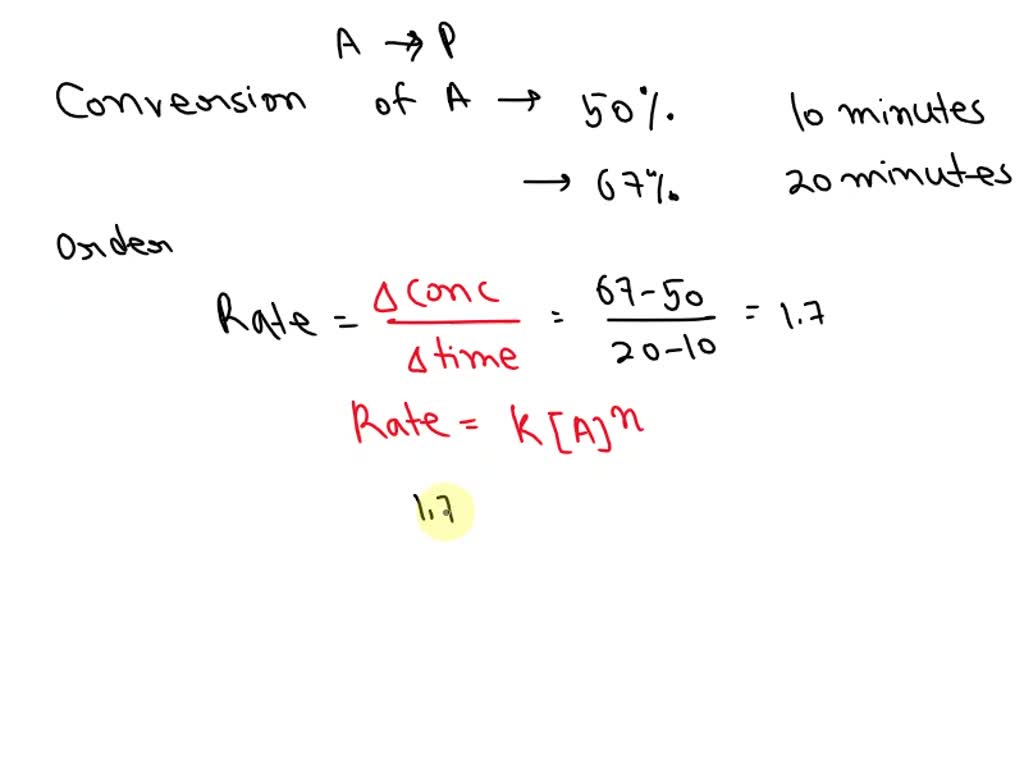 A → P
Conversion of A → 50% 10 minutes
→ 67% 20 minutes
Order
Rate = Δ Conc / Δ time = 67-50 / 20-10 = 1.7
Rate = K[A]^n
1.7